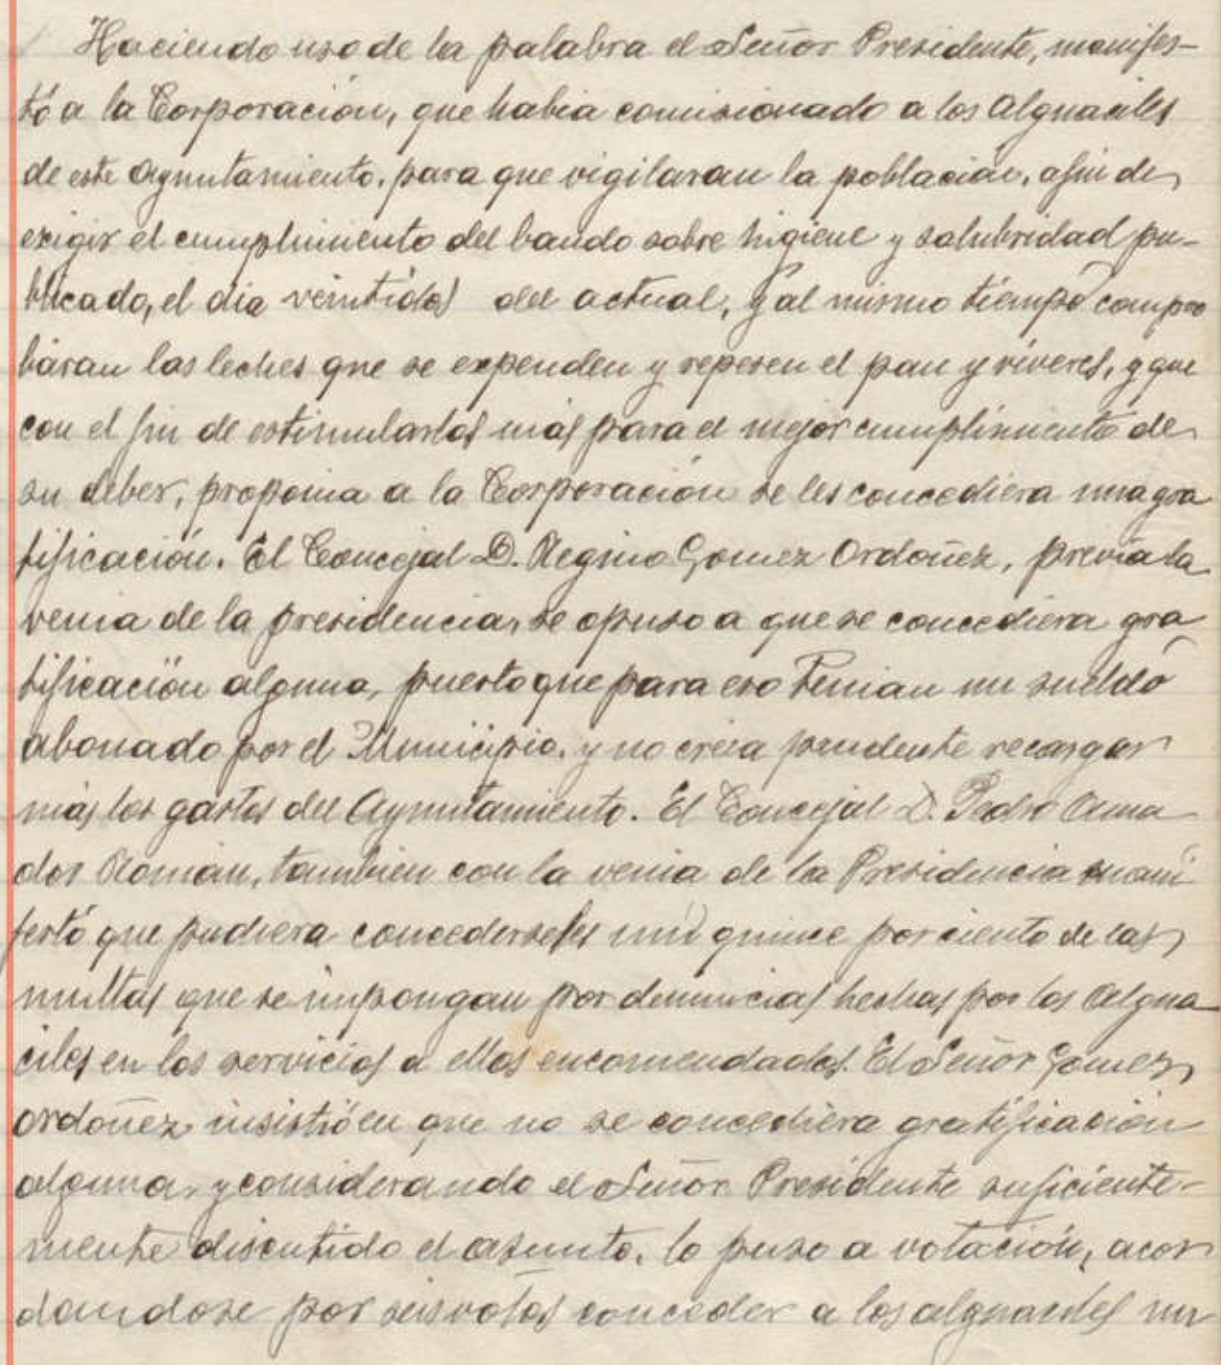 Haciendo uso de la palabra el Señor Presidente, manifes-
tó a la Corporación, que habia comisionado a los Alguaciles
de este Ayuntamiento, para que vigilaran la población, afin de
exigir el cumplimiento del bando sobre higiene y salubridad pu-
blicado, el dia veintidos del actual, y al mismo tiempo compro
baran las leches que se expenden y repesen el pan y viveres, y que
con el fin de estimularlos más para el mejor cumplimiento de
su deber, proponia a la Corporación se les concediera una gra
tificación. El Concejal D. Regino Gomez Ordoñez, previa la
venia de la presidencia, se opuso a que se concediera gra
tificación alguna, puesto que para eso tenian un sueldo
abonado por el Municipio, y no creia prudente recargar
más los gastos del Ayuntamiento. El Concejal D. Pedro Ama
dor Román, tambien con la venia de la Presidencia mani
festó que pudiera concederseles un quince por ciento de las
multas que se impongan por denuncias hechas por los Algua
ciles en los servicios a ellos encomendados. El Señor Gomez
Ordoñez insistió en que no se concediera gratificación
alguna, y considerando el Señor Presidente suficiente-
mente discutido el asunto, lo puso a votación, acor
dandose por seis votos conceder a los alguaciles un